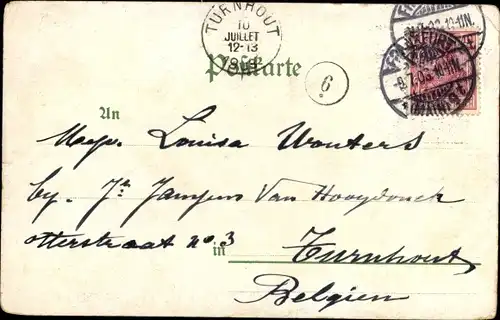 TURNHOUT
10
JUILLET
12-13
Postkarte
6
An
Mej. Louisa Wouters
by. Jr. Janssens Van Hooydonck
otterstraat no. 3
in Turnhout
Belgien